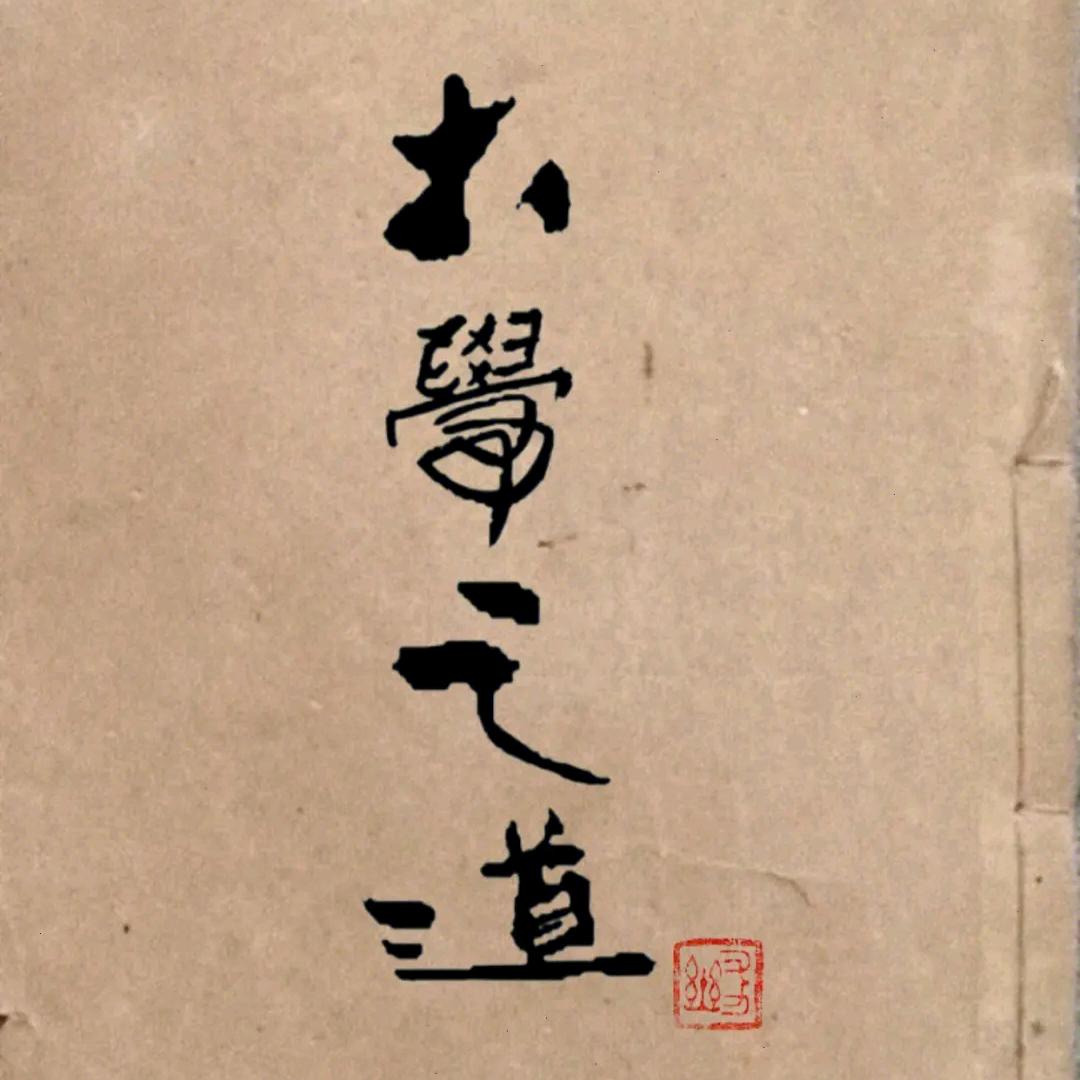 大學之道